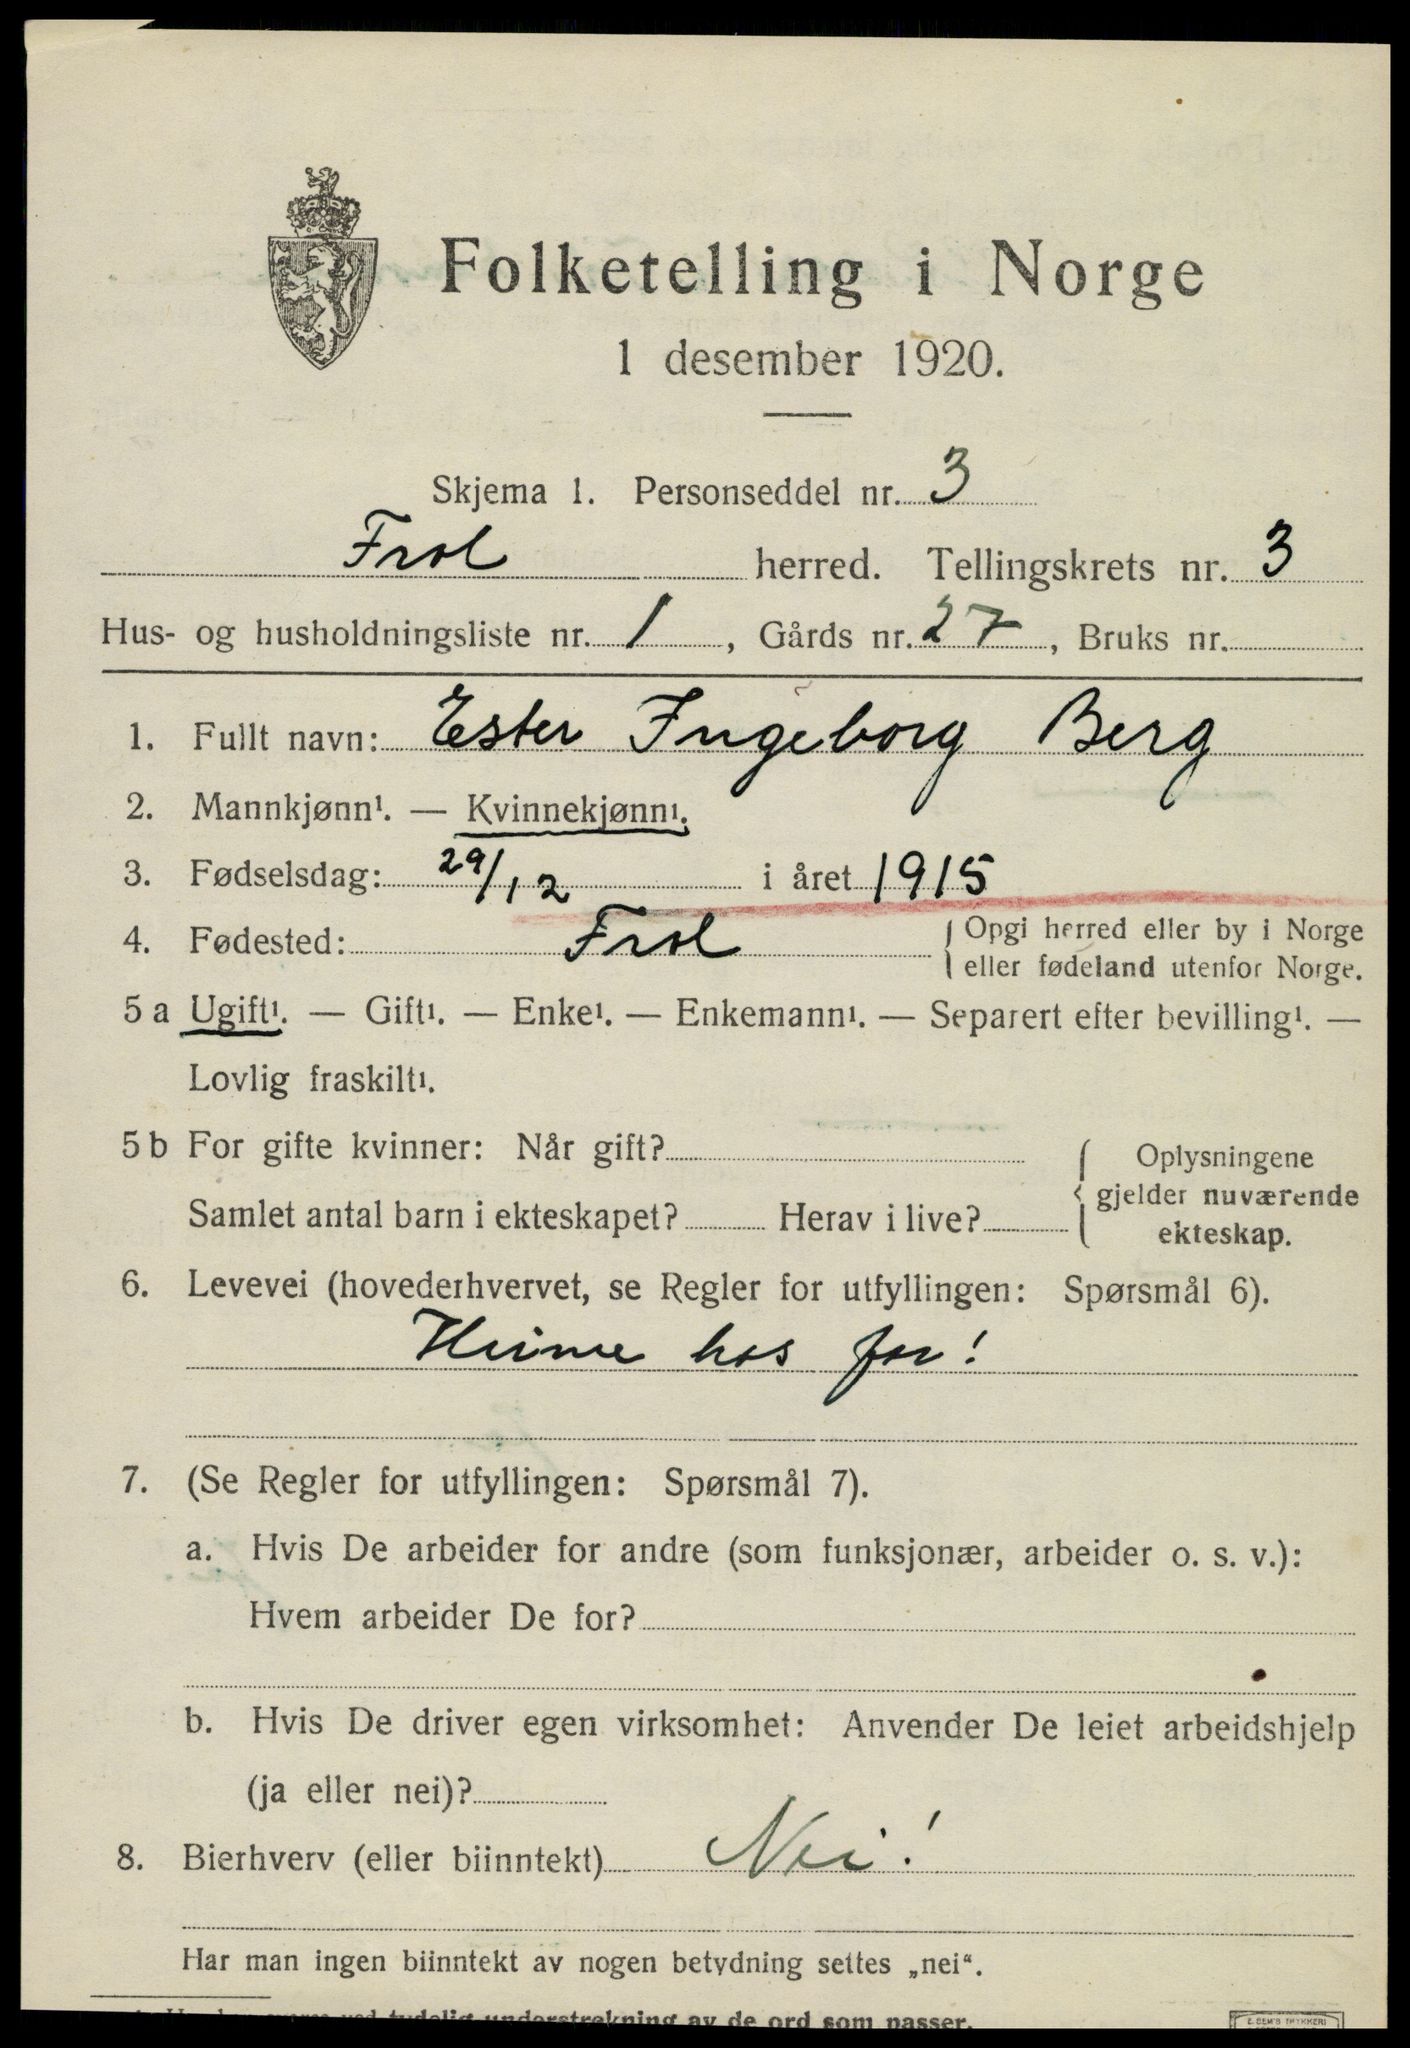 Folketelling i Norge
1 desember 1920.
Skjema 1. Personseddel nr. 3
Frol herred. Tellingskrets nr. 3
Hus- og husholdningsliste nr. 1, Gårds nr. 27, Bruks nr.
1. Fullt navn: Ester Ingeborg Berg
2. Mannkjønn¹. — Kvinnekjønn¹.
3. Fødselsdag: 29/12 i året 1915
4. Fødested: Frol { Opgi herred eller by i Norge
eller fødeland utenfor Norge.
5 a Ugift¹. — Gift¹. — Enke¹. — Enkemann¹. — Separert efter bevilling¹. —
Lovlig fraskilt¹.
5 b For gifte kvinner: Når gift?
Samlet antal barn i ekteskapet? Herav i live?
{ Oplysningene
gjelder nuværende
ekteskap.
6. Levevei (hovederhvervet, se Regler for utfyllingen: Spørsmål 6).
Heime hos far!
7. (Se Regler for utfyllingen: Spørsmål 7).
a. Hvis De arbeider for andre (som funksjonær, arbeider o. s. v.):
Hvem arbeider De for?
b. Hvis De driver egen virksomhet: Anvender De leiet arbeidshjelp
(ja eller nei)?
8. Bierhverv (eller biinntekt) Nei!
Har man ingen biinntekt av nogen betydning settes „nei“.
ved tydelig understrekning av de ord som passer.